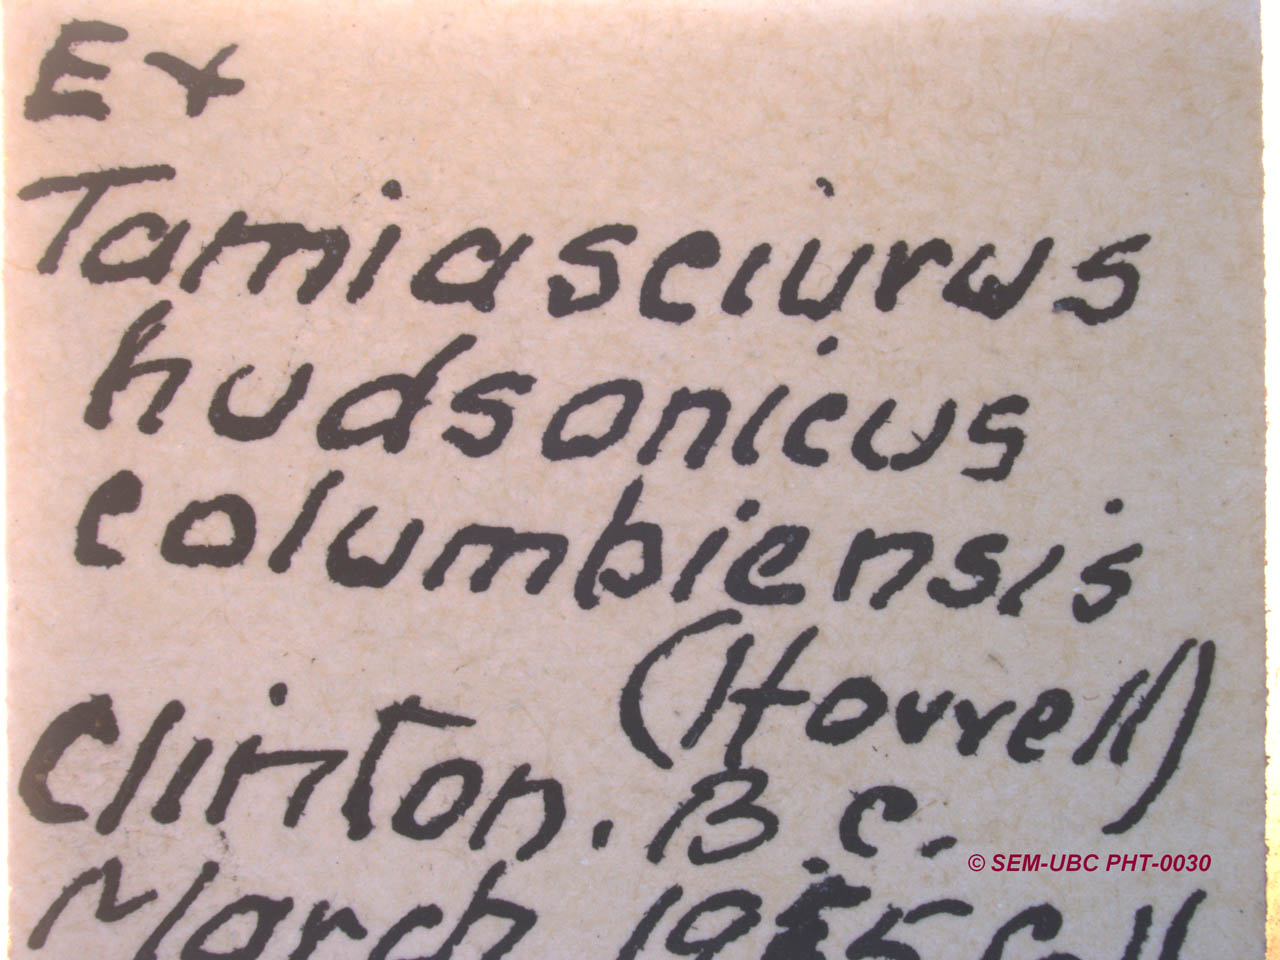 Ex
Tamiasciurus
hudsonicus
columbiensis
(Howell)
Clinton. B.C.
© SEM-UBC PHT-0030
March Coll